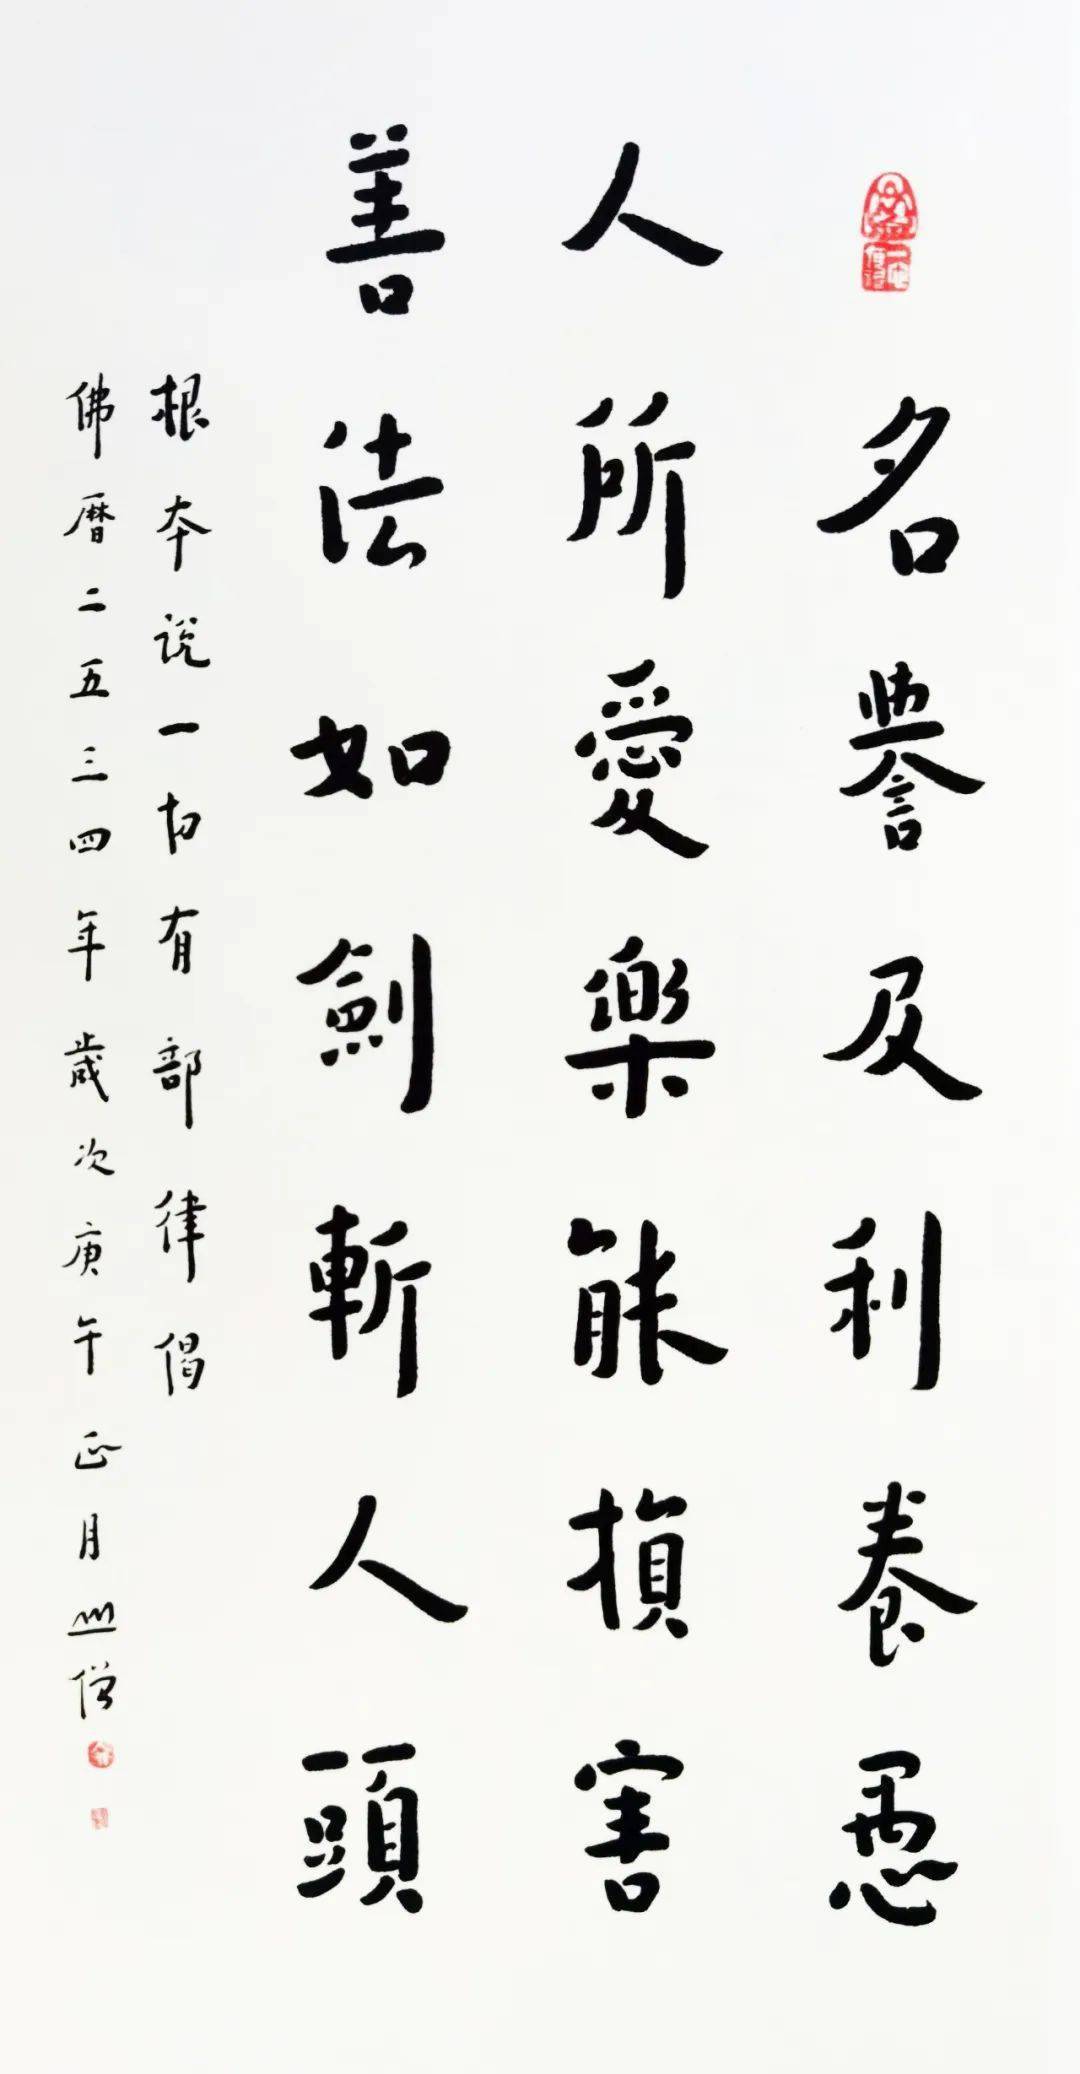 名譽及利養愚
人所愛樂能損害
善法如劍斬人頭
根本說一切有部律偈
佛曆二五三四年歲次庚午正月
僧